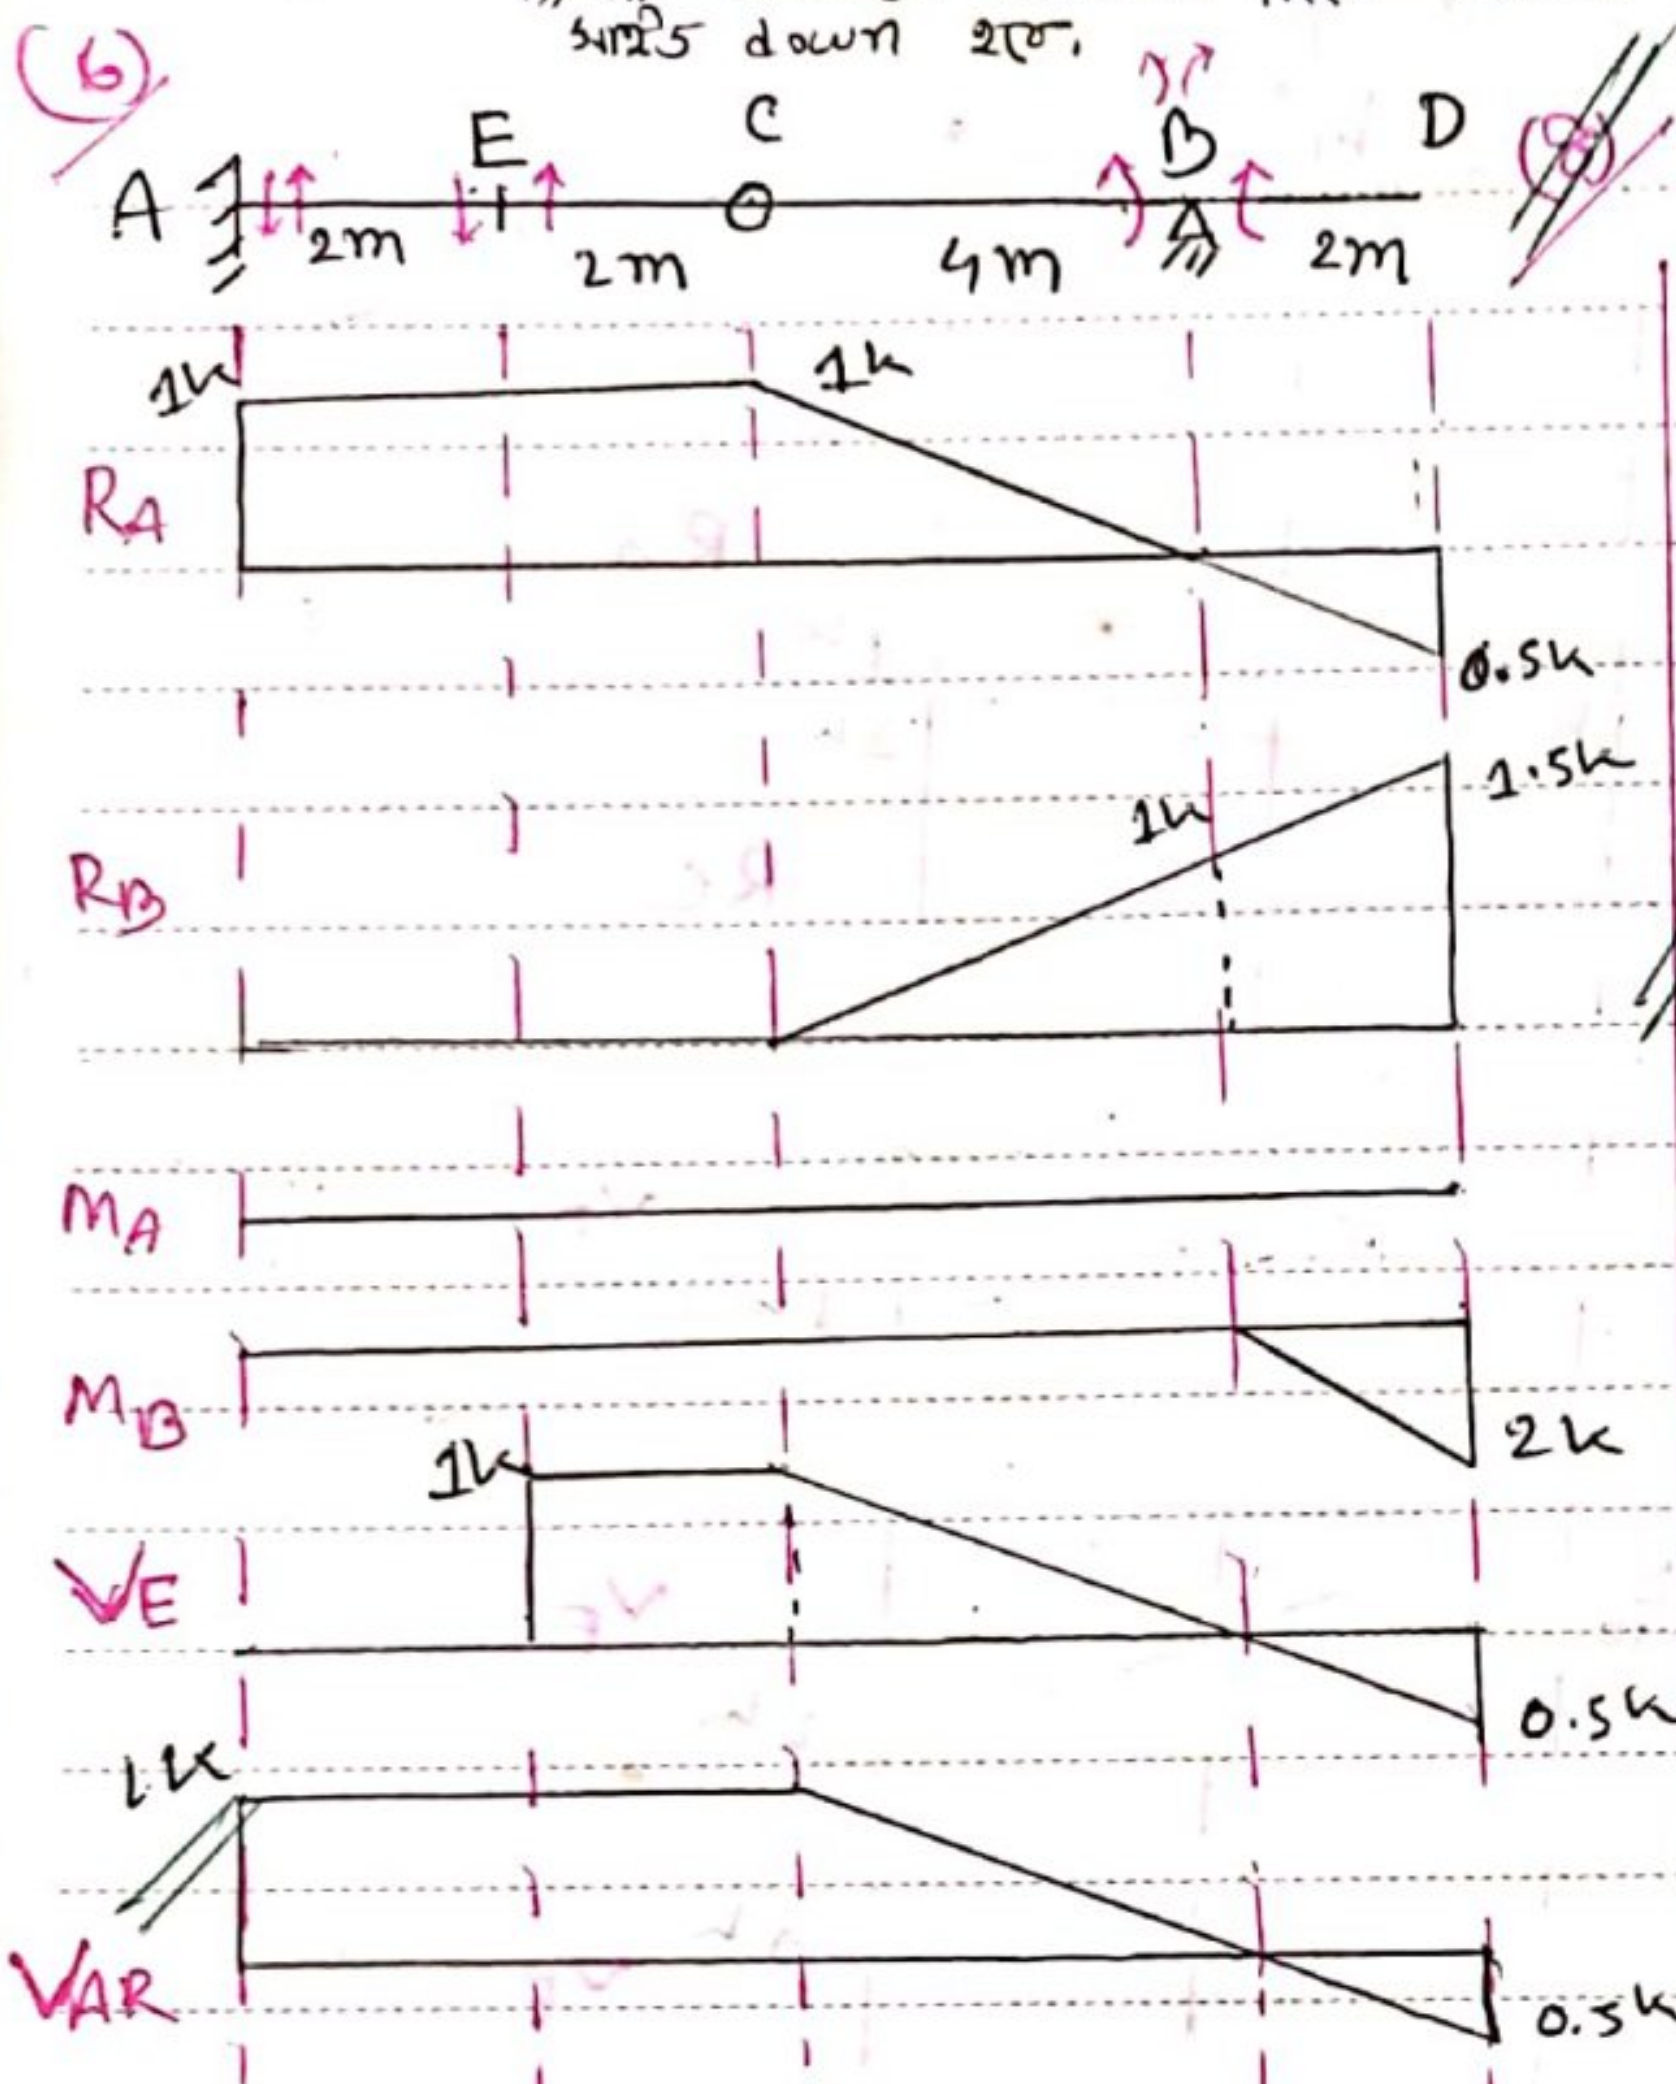 সাইড down হবে.
(6)
A E C B D
2m 2m 4m 2m
1k 1k
RA
0.5k
1.5k
1k
RB
MA
MB
2k
1k
VE
0.5k
1k
VAR
0.5k